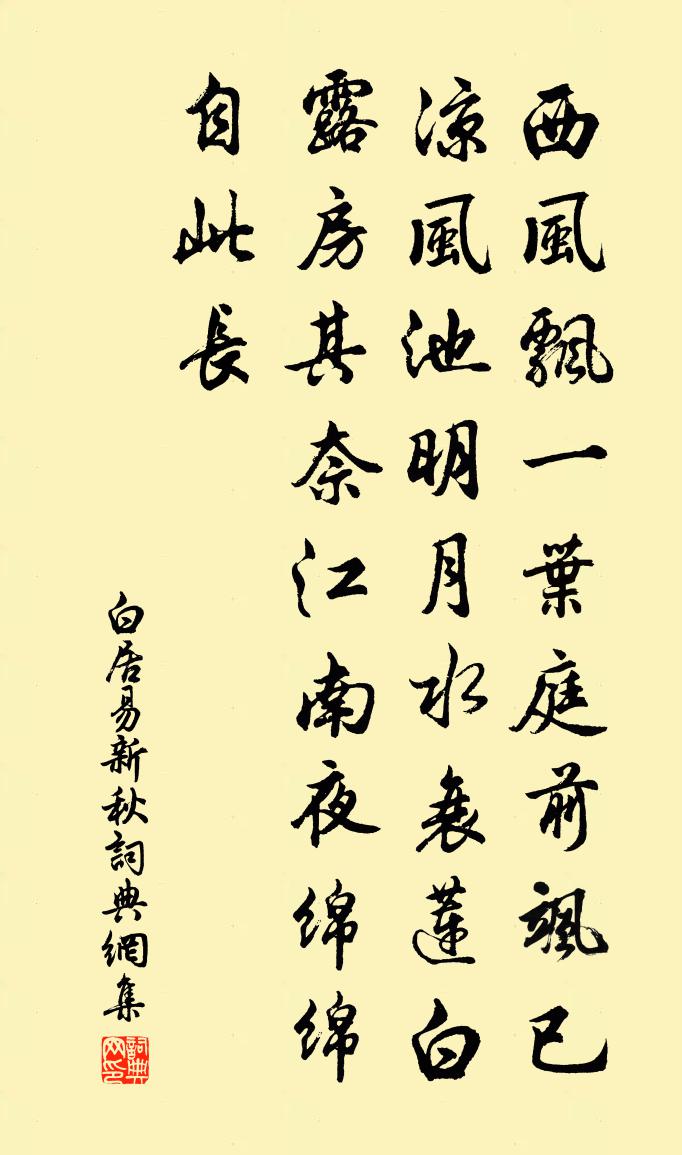 西風飄一葉庭前颯已
涼風池明月水衰蓮白
露房其奈江南夜綿綿
自此長
白居易新秋詞典網集
詞典网印